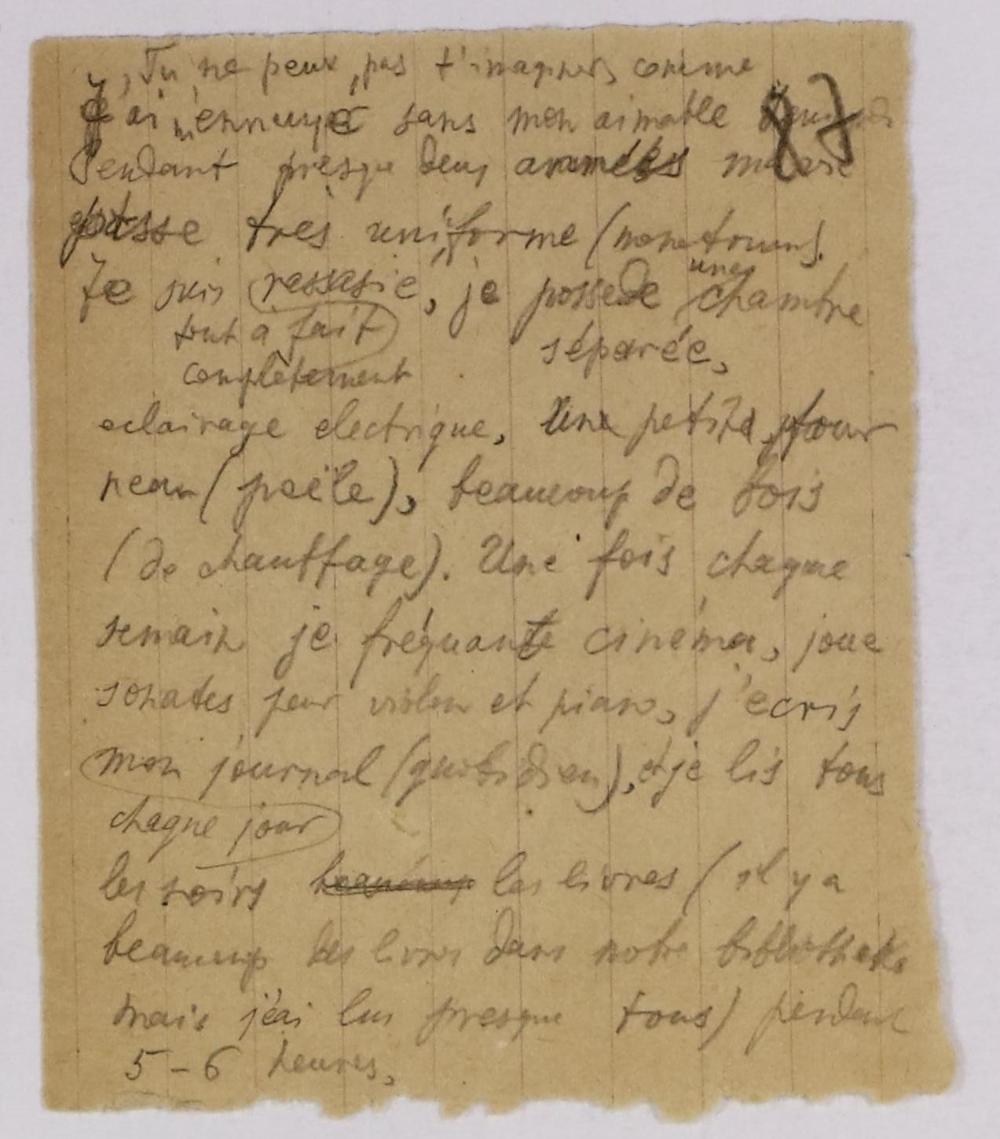 Tu ne peux pas t'imaginer comme
J'ai m'ennuyé sans mon aimable
87
Pendant presque deux années ma vie
passe très uniforme (monotrune).
Je suis rassasié, je possede une chambre
tout à fait séparée,
complètement
eclairage electrique, Une petite four
neau (poële), beaucoup de bois
(de chauffage). Une fois chaque
semain je fréquante cinéma, joue
sonates pour violon et piano, j'ecris
mon journal (quotidien), et je lis tous
chaque jour
les soirs beaucoup les livres (il y a
beaucoup des livres dans notre bibliotheke
mais j'ai lus presque tous) pendant
5-6 heures,